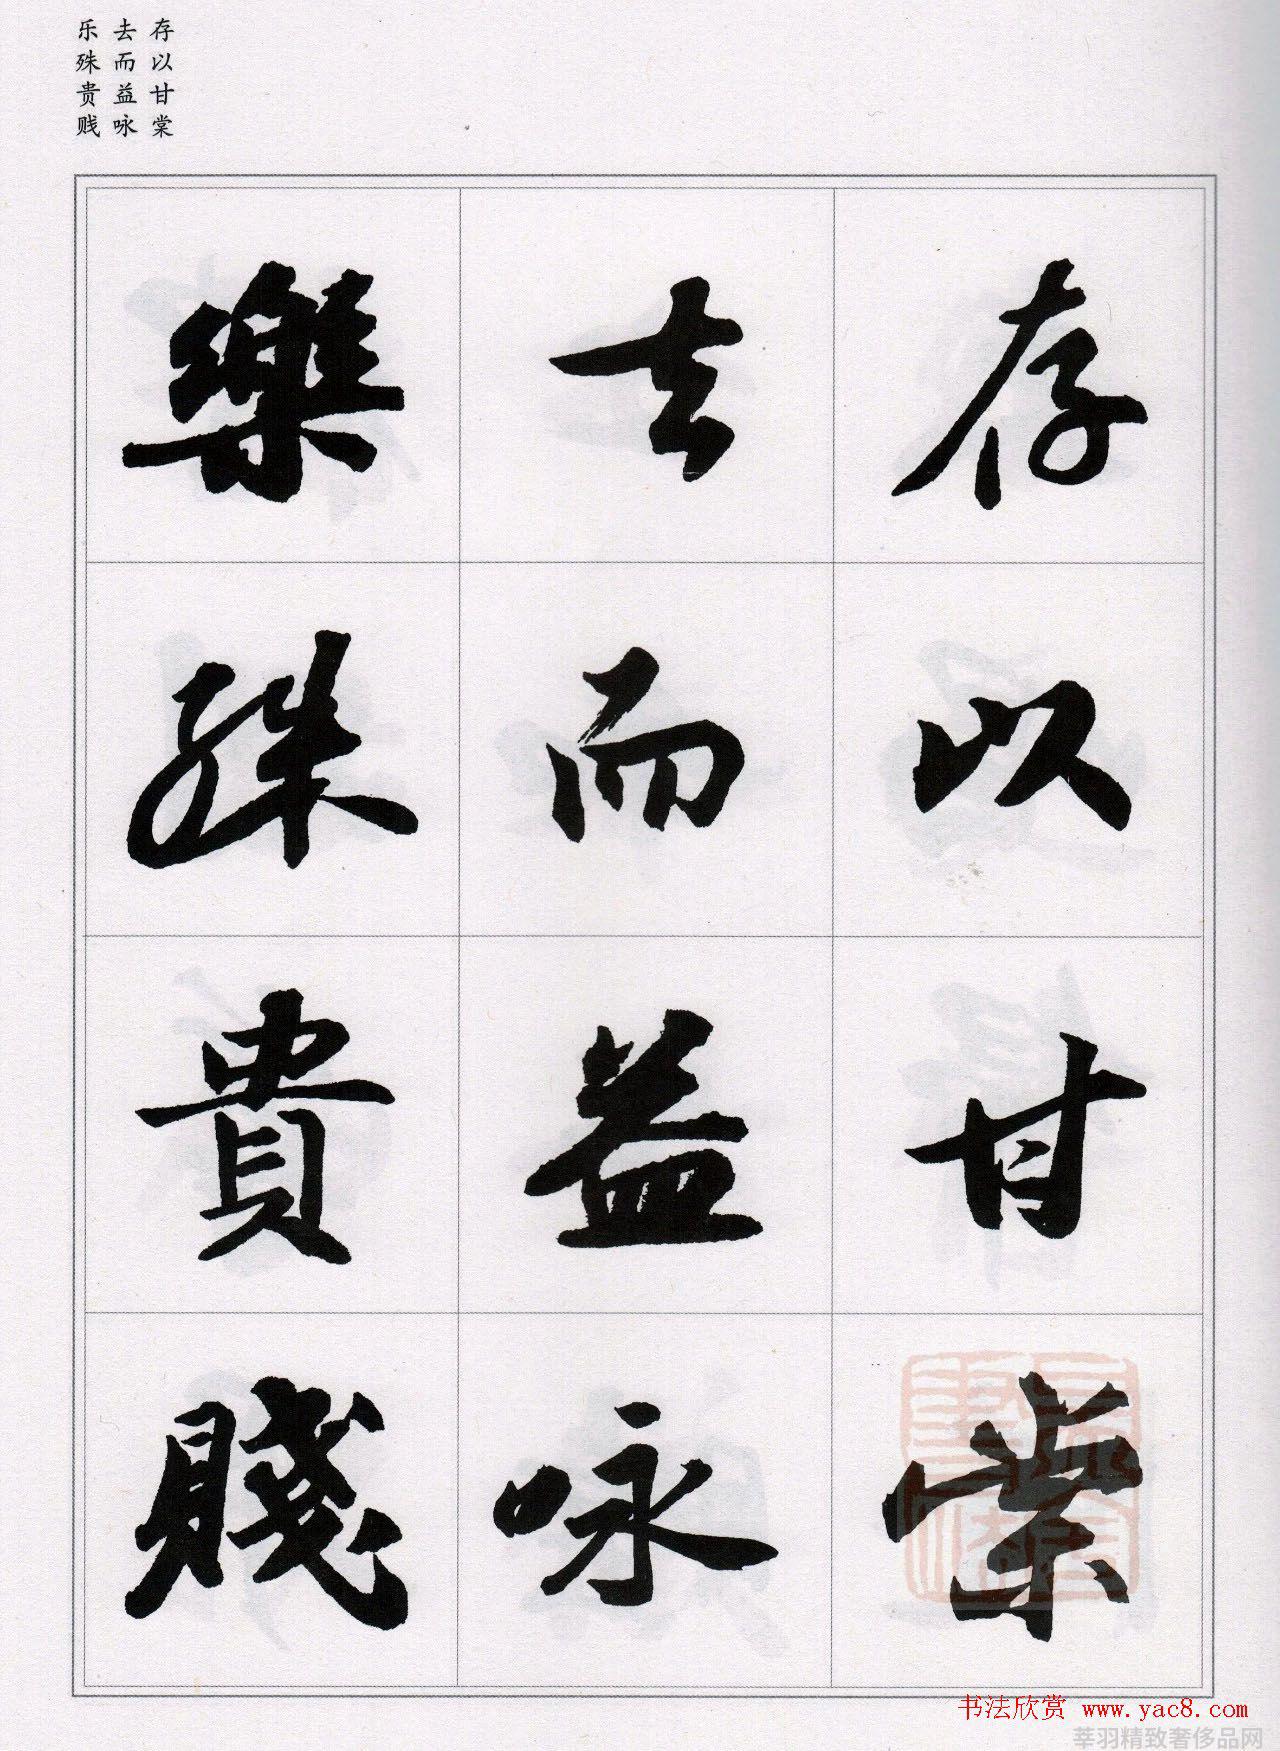 存以甘棠
去而益咏
乐殊贵贱
存以甘棠
去而益咏
樂殊貴賤
书法欣赏 www.yac8.com
莘羽精致奢侈品网